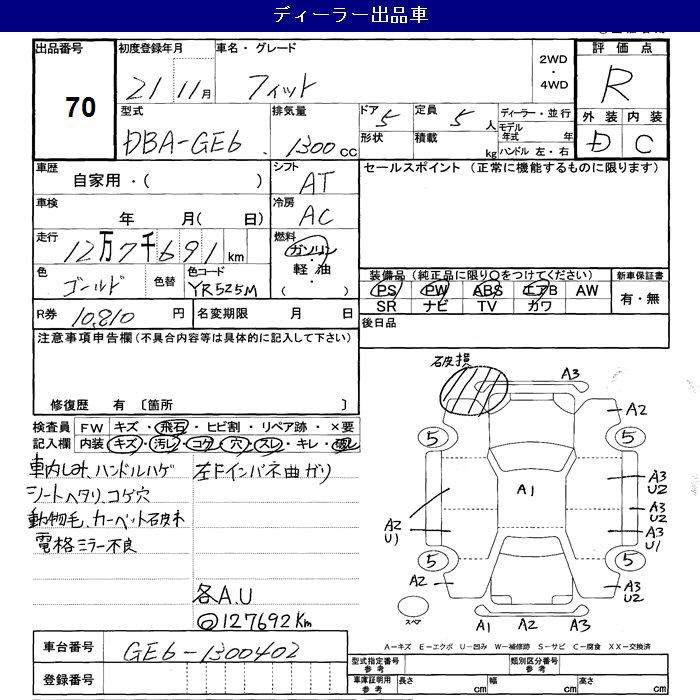 ディーラー出品車
出品番号 初度登録年月 車名・グレード 評価点
70 21 11月 フィット 2WD ・ 4WD R
型式 排気量 ドア 5 定員 5 人 ディーラー・並行 外装 内装
DBA-GE6 1300 CC 形状 積載 kg モデル年式 年 D C
ハンドル 左・右
車歴 シフト セールスポイント (正常に機能するものに限ります)
自家用・( ) AT
車検 冷房
年 月( 日) AC
走行 燃料
12万7千691 km ガソリン・軽油 ( )
色 色替 色コード 装備品 (純正品に限り○をつけてください) 新車保証書
ゴールド YR525M PS PW ABS エアB AW 有・無
SR ナビ TV カワ
R券 10,810 円 名変期限 月 日 後日品
注意事項申告欄 (不具合内容等は具体的に記入して下さい)
修復歴 有 〔箇所 〕
検査員 FW キズ・飛石・ヒビ割・リペア跡・×要
記入欄 内装 キズ・汚レ・コゲ・穴・スレ・キレ・破レ
車内しみ、ハンドルハゲ
シートヘタリ、コゲ穴
動物毛、カーペット破れ
電格ミラー不良
左Fインパネ曲ガリ
各A.U
◎127692Km
破損
A3
A2
5 5
A1
A3
U2
A3
U2
A3
U1
A2
U1
5 5
A2
A3
U2
スペア
A1 A2 A3
A－キズ E－エクボ U－凹み W－補修跡 S－サビ C－腐食 XX－交換済
車台番号 GE6-1300402
登録番号
型式指定番号 参考 類別区分番号 参考
車庫証明用 参考 長さ cm 幅 cm 高さ cm